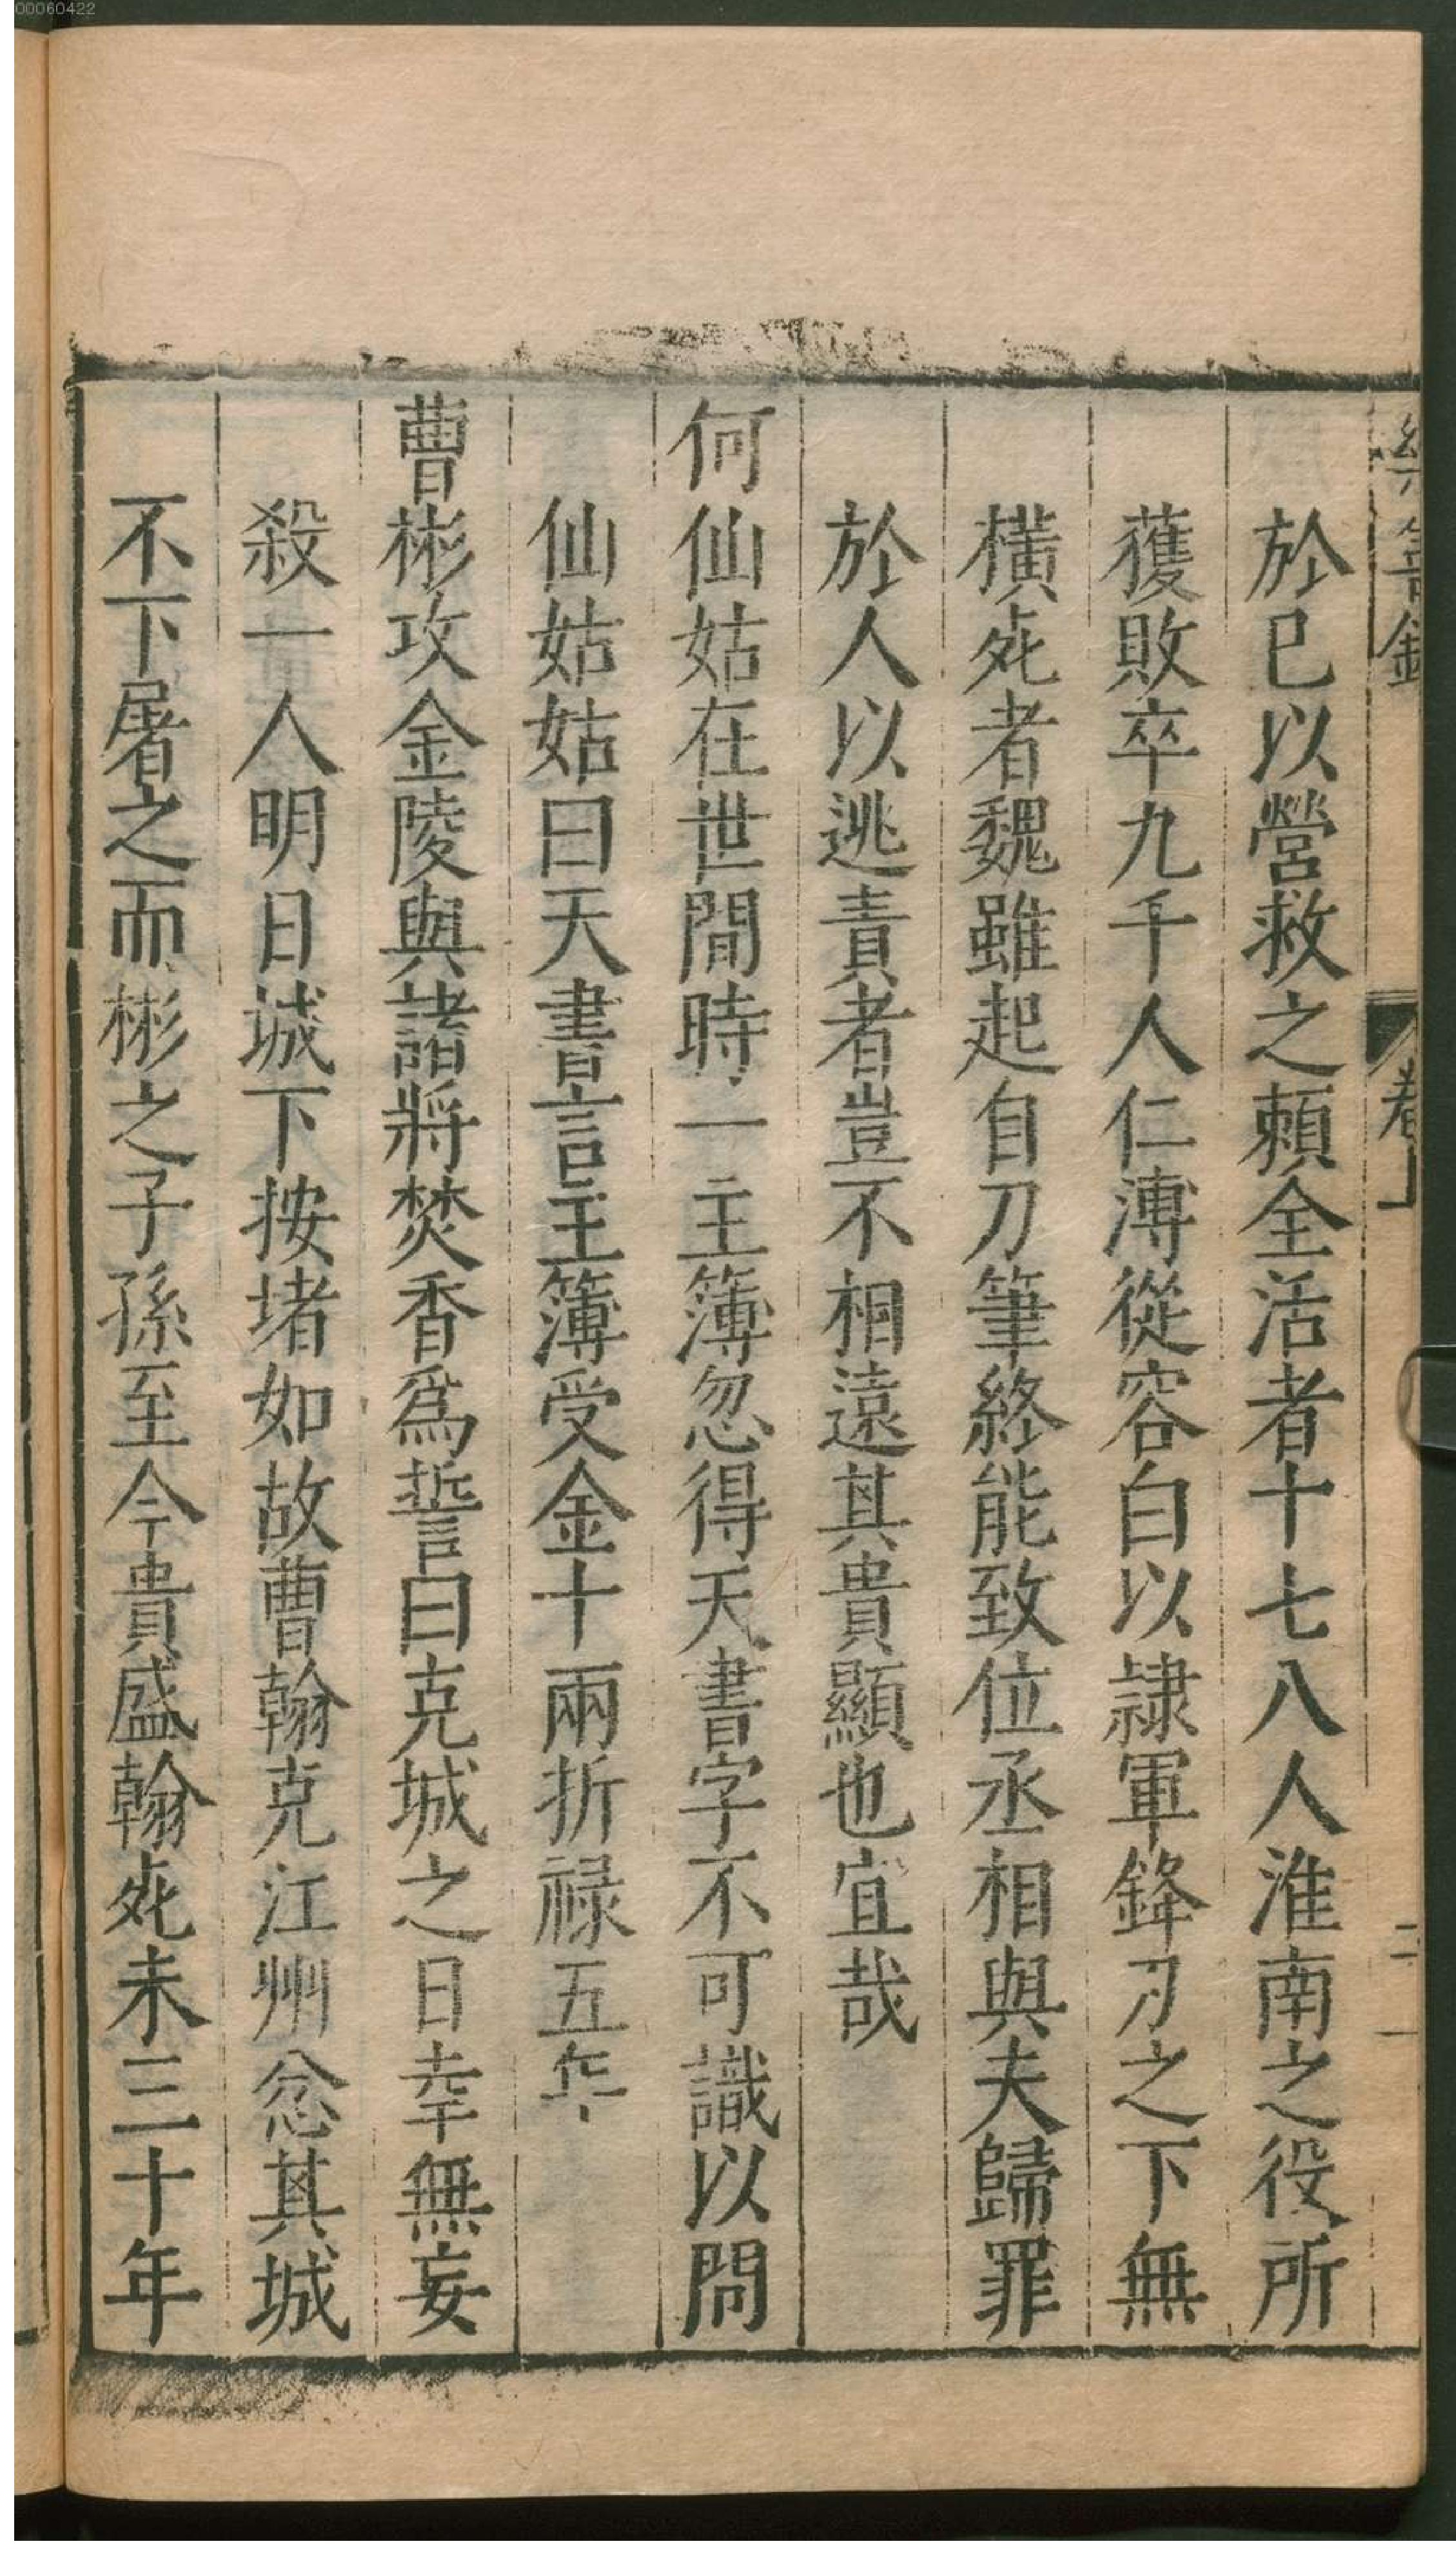 00060422
於已以營救之賴全活者十七八人淮南之役所
獲敗卒九千人仁溥從容白以隷軍鋒刃之下無
橫死者魏雖起自刀筆終能致位丞相與夫歸罪
於人以逃責者豈不相遠其貴顯也宜哉
何仙姑在世間時一主簿忽得天書字不可識以問
仙姑姑曰天書言主簿受金十兩折祿五年
曹彬攻金陵與諸將焚香爲誓曰克城之日幸無妄
殺一人明日城下按堵如故曹翰克江州忿其城
不下屠之而彬之子孫至今貴盛翰死未三十年